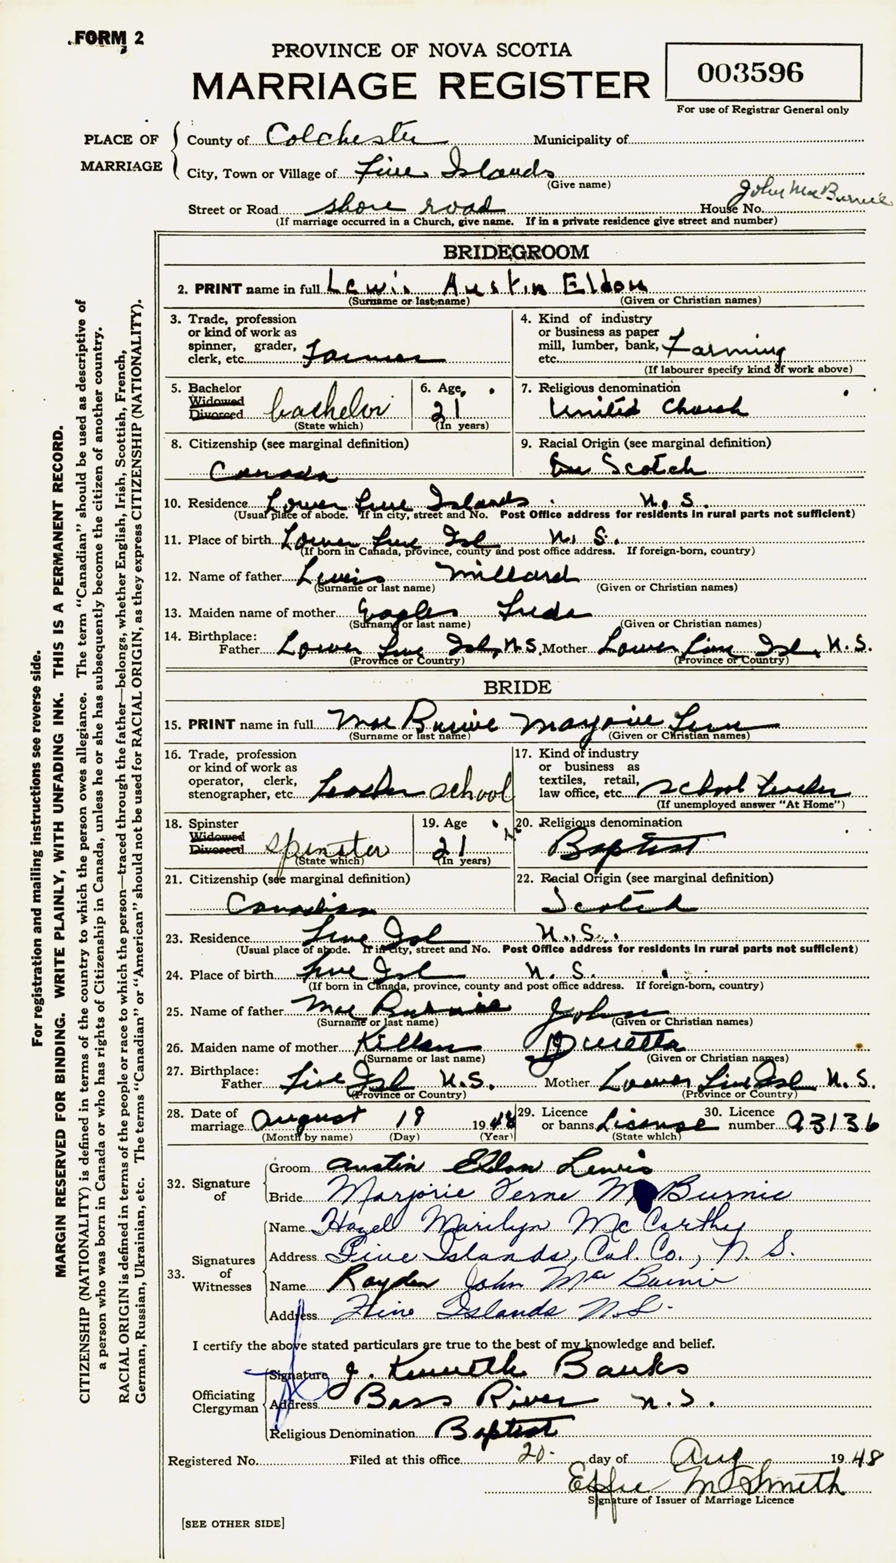 FORM 2
PROVINCE OF NOVA SCOTIA
MARRIAGE REGISTER
003596
For use of Registrar General only
PLACE OF MARRIAGE
County of Colchester Municipality of
City, Town or Village of Five Islands
(Give name)
John MacBurnie
Street or Road shore road House No.
(If marriage occurred in a Church, give name. If in a private residence give street and number)
BRIDEGROOM
2. PRINT name in full Lewis Austin Eldon
(Surname or last name) (Given or Christian names)
3. Trade, profession or kind of work as spinner, grader, clerk, etc. Farmer
4. Kind of industry or business as paper mill, lumber, bank, etc. Farming
(If labourer specify kind of work above)
5. Bachelor Widowed Divorced bachelor
(State which)
6. Age 21
(In years)
7. Religious denomination
United Church
8. Citizenship (see marginal definition)
Canada
9. Racial Origin (see marginal definition)
Scotch
10. Residence Lower Five Islands N.S.
(Usual place of abode. If in city, street and No. Post Office address for residents in rural parts not sufficient)
11. Place of birth Lower Five Isl N.S.
(If born in Canada, province, county and post office address. If foreign-born, country)
12. Name of father Lewis Millard
(Surname or last name) (Given or Christian names)
13. Maiden name of mother Eagles Freda
(Surname or last name) (Given or Christian names)
14. Birthplace:
Father Lower Five Isl, N.S. Mother Lower Five Isl, N.S.
(Province or Country) (Province or Country)
BRIDE
15. PRINT name in full MacBurnie Marjorie Fern
(Surname or last name) (Given or Christian names)
16. Trade, profession or kind of work as operator, clerk, stenographer, etc. Teacher school
17. Kind of industry or business as textiles, retail, law office, etc. school teacher
(If unemployed answer "At Home")
18. Spinster Widowed Divorced spinster
(State which)
19. Age 21
(In years)
20. Religious denomination
Baptist
21. Citizenship (see marginal definition)
Canadian
22. Racial Origin (see marginal definition)
Scotch
23. Residence Five Isl N.S.
(Usual place of abode. If in city, street and No. Post Office address for residents in rural parts not sufficient)
24. Place of birth Five Isl N.S.
(If born in Canada, province, county and post office address. If foreign-born, country)
25. Name of father MacBurnie John
(Surname or last name) (Given or Christian names)
26. Maiden name of mother Killen
(Surname or last name) (Given or Christian names)
27. Birthplace:
Father Five Isl N.S. Mother Lower Five Isl N.S.
(Province or Country) (Province or Country)
28. Date of marriage August 19 1948
(Month by name) (Day) (Year)
29. Licence or banns License
(State which)
30. Licence number 93136
32. Signature of
Groom Austin Eldon Lewis
Bride Marjorie Ferne McBurnie
33. Signatures of Witnesses
Name Hazel Marilyn McCarthy
Address Five Islands, Col. Co., N.S.
Name Rayden John MacBurnie
Address Five Islands N.S.
I certify the above stated particulars are true to the best of my knowledge and belief.
Officiating Clergyman
Signature J. Kenneth Banks
Address Bass River N.S.
Religious Denomination Baptist
Registered No. Filed at this office 20 day of Aug 1948
Effie M Smith
Signature of Issuer of Marriage Licence
[SEE OTHER SIDE]
For registration and mailing instructions see reverse side.
MARGIN RESERVED FOR BINDING. WRITE PLAINLY, WITH UNFADING INK. THIS IS A PERMANENT RECORD.
CITIZENSHIP (NATIONALITY) is defined in terms of the country to which the person owes allegiance. The term "Canadian" should be used as descriptive of
a person who was born in Canada or who has rights of Citizenship in Canada, unless he or she has subsequently become the citizen of another country.
RACIAL ORIGIN is defined in terms of the people or race to which the person—traced through the father—belongs, whether English, Irish, Scottish, French,
German, Russian, Ukrainian, etc. The terms "Canadian" or "American" should not be used for RACIAL ORIGIN, as they express CITIZENSHIP (NATIONALITY).